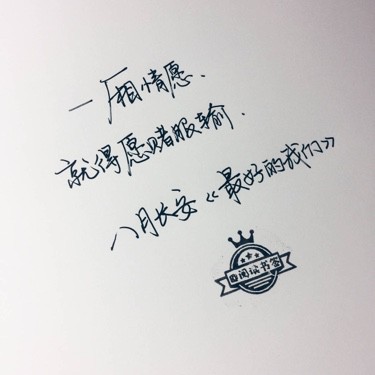 一厢情愿、
就得愿赌服输.
八月长安《最好的我们》
阅读书签